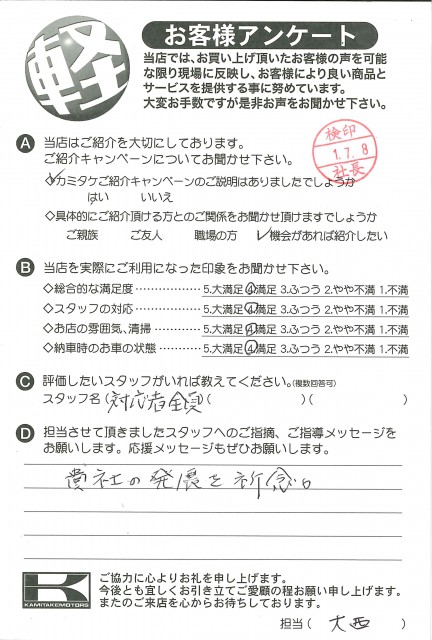 軽
お客様アンケート
当店では、お買い上げ頂いたお客様の声を可能
な限り現場に反映し、お客様により良い商品と
サービスを提供する事に努めています。
大変お手数ですが是非お声をお聞かせ下さい。
検印
1.7.8
社長
A 当店はご紹介を大切にしております。
ご紹介キャンペーンについてお聞かせ下さい。
◇カミタケご紹介キャンペーンのご説明はありましたでしょうか
はい いいえ
◇具体的にご紹介頂ける方とのご関係をお聞かせ頂けますでしょうか
ご親族 ご友人 職場の方 機会があれば紹介したい
B 当店を実際にご利用になった印象をお聞かせ下さい。
◇総合的な満足度 …………… 5.大満足 4.満足 3.ふつう 2.やや不満 1.不満
◇スタッフの対応 …………… 5.大満足 4.満足 3.ふつう 2.やや不満 1.不満
◇お店の雰囲気、清掃 ……… 5.大満足 4.満足 3.ふつう 2.やや不満 1.不満
◇納車時のお車の状態 ……… 5.大満足 4.満足 3.ふつう 2.やや不満 1.不満
C 評価したいスタッフがいれば教えてください。(複数回答可)
スタッフ名(対応者全員)( )( )
D 担当させて頂きましたスタッフへのご指摘、ご指導メッセージを
お願いします。応援メッセージもぜひお願いします。
貴社の発展を祈念。
KAMITAKEMOTORS
ご協力に心よりお礼を申し上げます。
今後とも宜しくお引き立てご愛顧の程お願い申し上げます。
またのご来店を心からお待ちしております。
担当( 大西 )